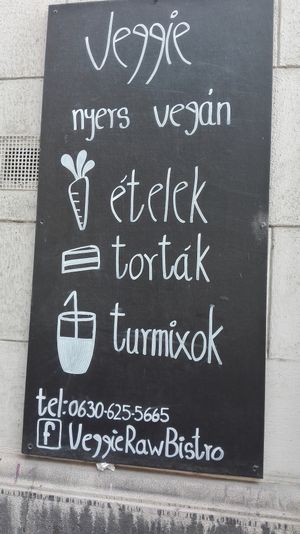 Veggie
nyers vegán
ételek
torták
turmixok
tel:0630-625-5665
f VeggieRawBistro